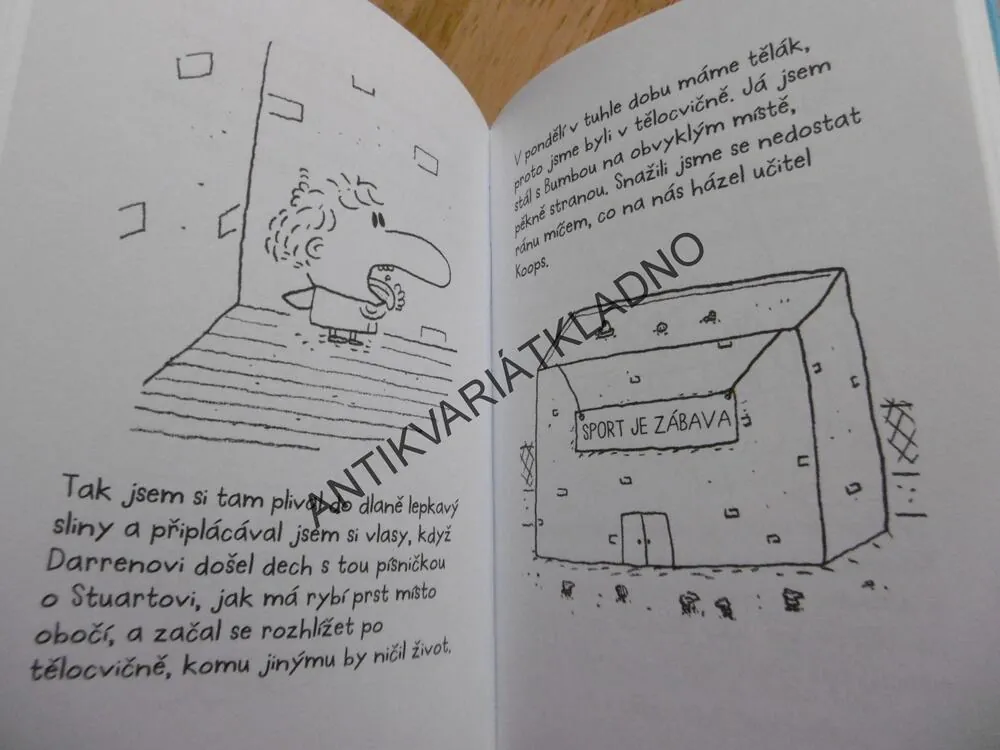 Tak jsem si tam plival do dlaně lepkavý
sliny a připlácával jsem si vlasy, když
Darrenovi došel dech s tou písničkou
o Stuartovi, jak má rybí prst místo
obočí, a začal se rozhlížet po
tělocvičně, komu jinýmu by ničil život.
V pondělí v tuhle dobu máme tělák,
proto jsme byli v tělocvičně. Já jsem
stál s Bumbou na obvyklým místě,
pěkně stranou. Snažili jsme se nedostat
ránu míčem, co na nás házel učitel
Koops.
SPORT JE ZÁBAVA
ANTIKVARIÁTKLADNO